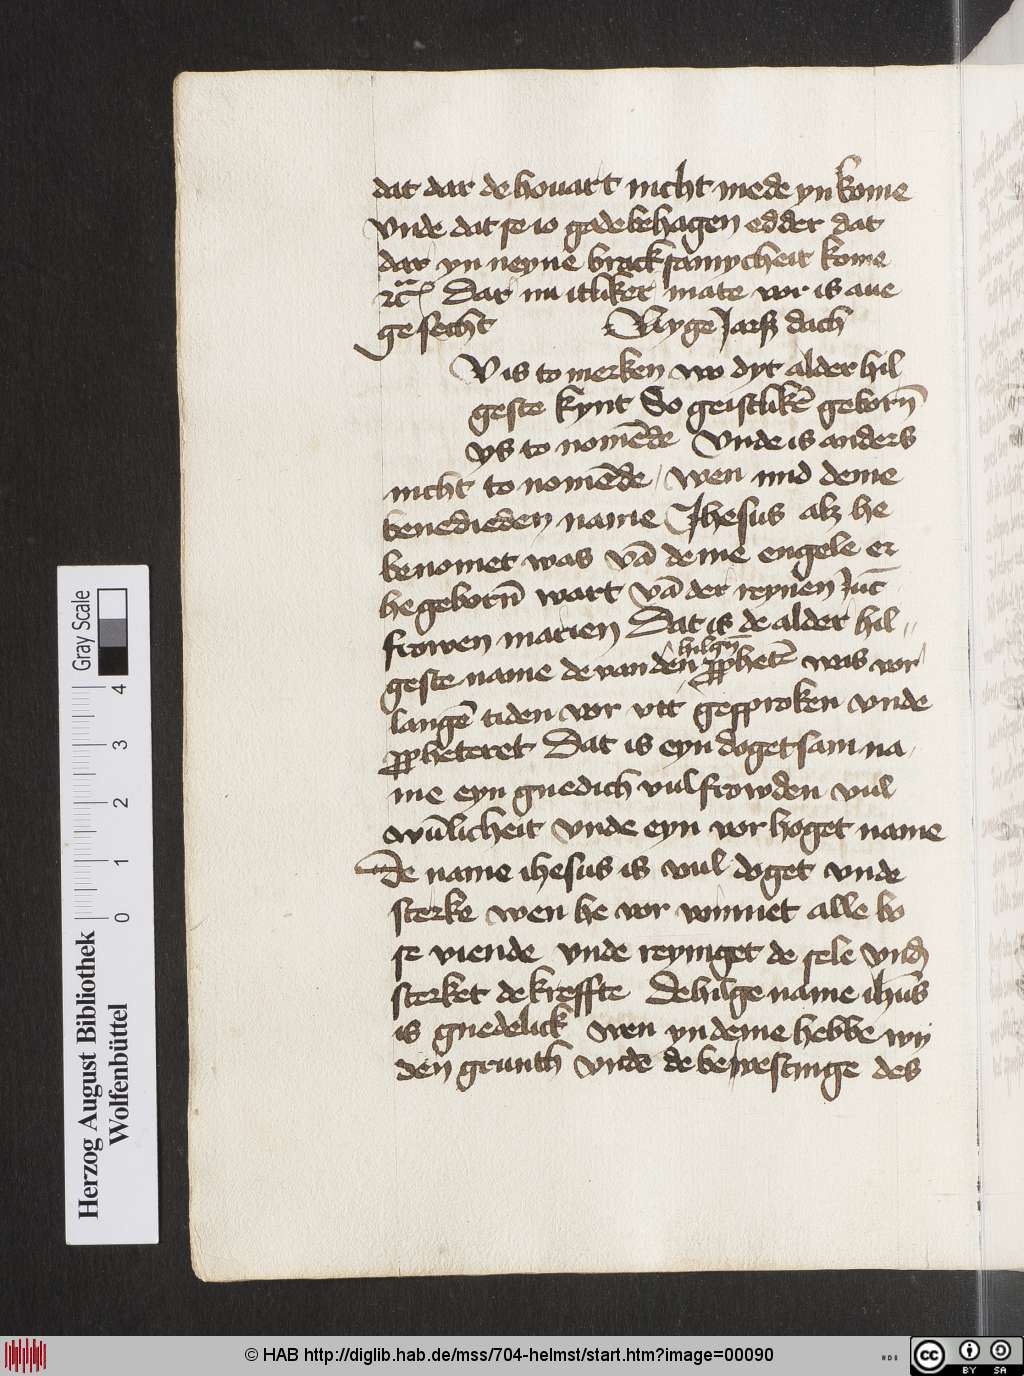 dat dar de houart nicht mede yn kome
vnde dat se io gode behagen edder dat
dar yn neyne brocksamycheit kome
rc̃ Dar nu itliker mate vor is aue
gesecht Nyge Jarß dach
V is to merken wo dyt alder hil
geste kynt So geistlikē geborn̄
ys to nomēde Vnde is anders
nicht to nomēde / wen mid deme
benedieden name Jhesus alz he
benomet was vā deme engele er
he geborn̄ wart vā der reynen Juc̄
frowen marien Dat is de alder hil
geste name de van den hilgē ꝓphetē was vor
langē tiden vor vtt gesproken vnde
ꝓpheteret Dat is eyn dogetsam na
me eyn gnedich vul frowden vul
wūlicheit vnde eyn vorhoget name
De name ihesus is vul doget vnde
sterke wen he vor winnet alle bo
se viende vnde reyniget de sele vnd̄
sterket de kreffte De hilge name ihūs
is gnedelick wen yn deme hebbe wy
den grunth vnde de bevestinge des
Herzog August Bibliothek
Wolfenbüttel
Gray Scale
0 1 2 3 4
© HAB http://diglib.hab.de/mss/704-helmst/start.htm?image=00090
cc BY SA